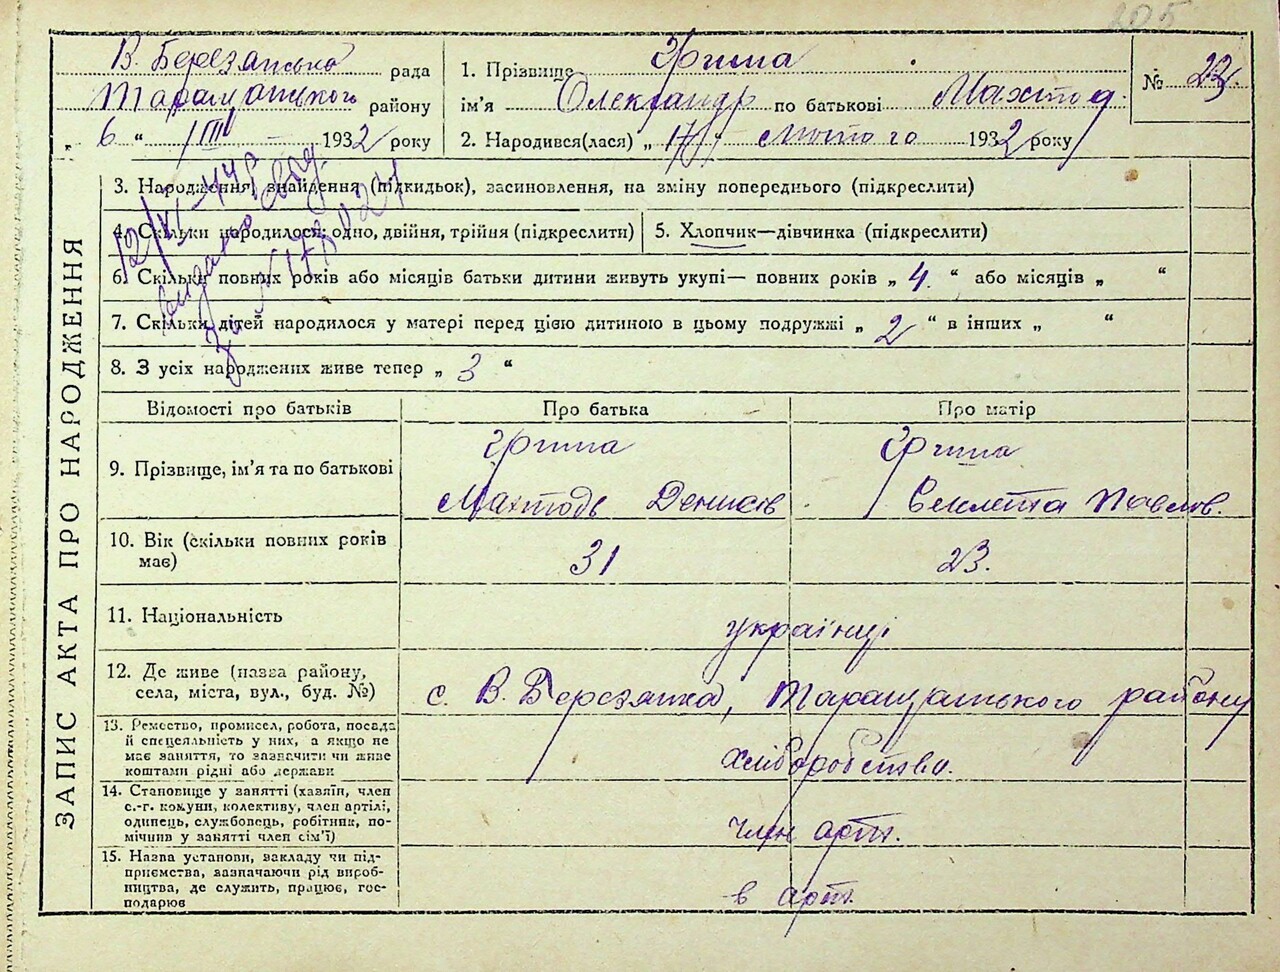 205
В. Березянська рада
Таращанського району
„ 6 “ III 1932 року
1. Прізвище Ярита
ім'я Олександр по батькові Махтод.
2. Народився(лася) „ 17 “ лютого 1932 року
№ 23
ЗАПИС АКТА ПРО НАРОДЖЕННЯ
3. Народження, знайдення (підкидьок), засиновлення, на зміну попереднього (підкреслити)
4. Скільки народилося: одно, двійня, трійня (підкреслити)
5. Хлопчик—дівчинка (підкреслити)
6. Скільки повних років або місяців батьки дитини живуть укупі— повних років „ 4. “ або місяців „ “
7. Скільки дітей народилося у матері перед цією дитиною в цьому подружжі „ 2 “ в інших „ “
8. З усіх народжених живе тепер „ 3 “
видано свід.
Відомості про батьків
Про батька
Про матір
9. Прізвище, ім'я та по батькові
Махтодь Денисів
Векли́та Павлов.
10. Вік (скільки повних років
має)
31
23.
11. Національність
українці
12. Де живе (назва району,
села, міста, вул., буд. №)
с. В. Березянка, Таращанського району
13. Ремество, промисел, робота, посада
й спецеяльність у них, а якщо не
має заняття, то зазначити чи живе
коштами рідні або держави
хліборобство.
14. Становище у занятті (хазяїн, член
с.-г. комуни, колективу, член артілі,
одинець, службовець, робітник, по-
мічник у занятті член сім'ї)
член арт.
15. Назва установи, закладу чи під-
приємства, зазначаючи рід вироб-
ництва, де служить, працює, гос-
подарює
в арт.